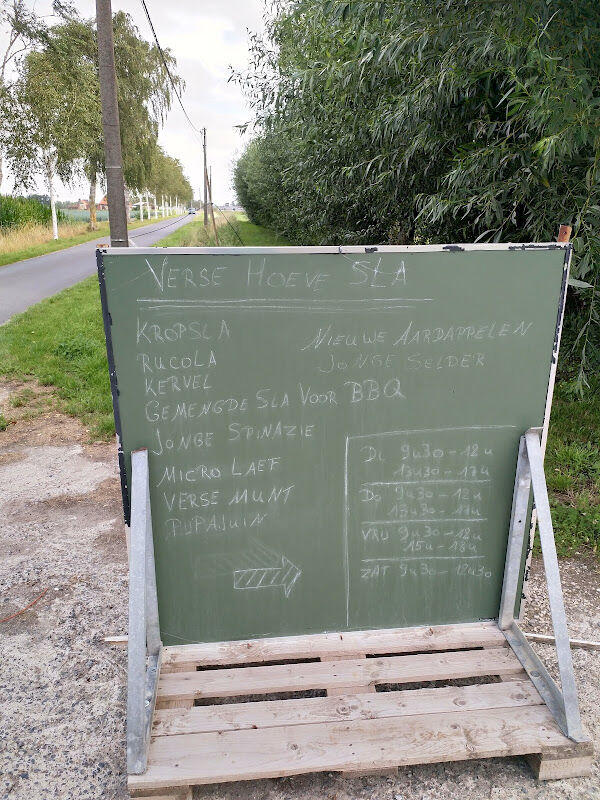 VERSE HOEVE SLA
KROPSLA
RUCOLA
KERVEL
GEMENGDE SLA VOOR BBQ
JONGE SPINAZIE
MICRO LAEF
VERSE MUNT
PIJPAJUIN
NIEUWE AARDAPPELEN
JONGE SELDER
DI 9u30 - 12u
13u30 - 17u
DO 9u30 - 12u
13u30 - 17u
VRIJ 9u30 - 12u
15u - 18u
ZAT 9u30 - 12u30